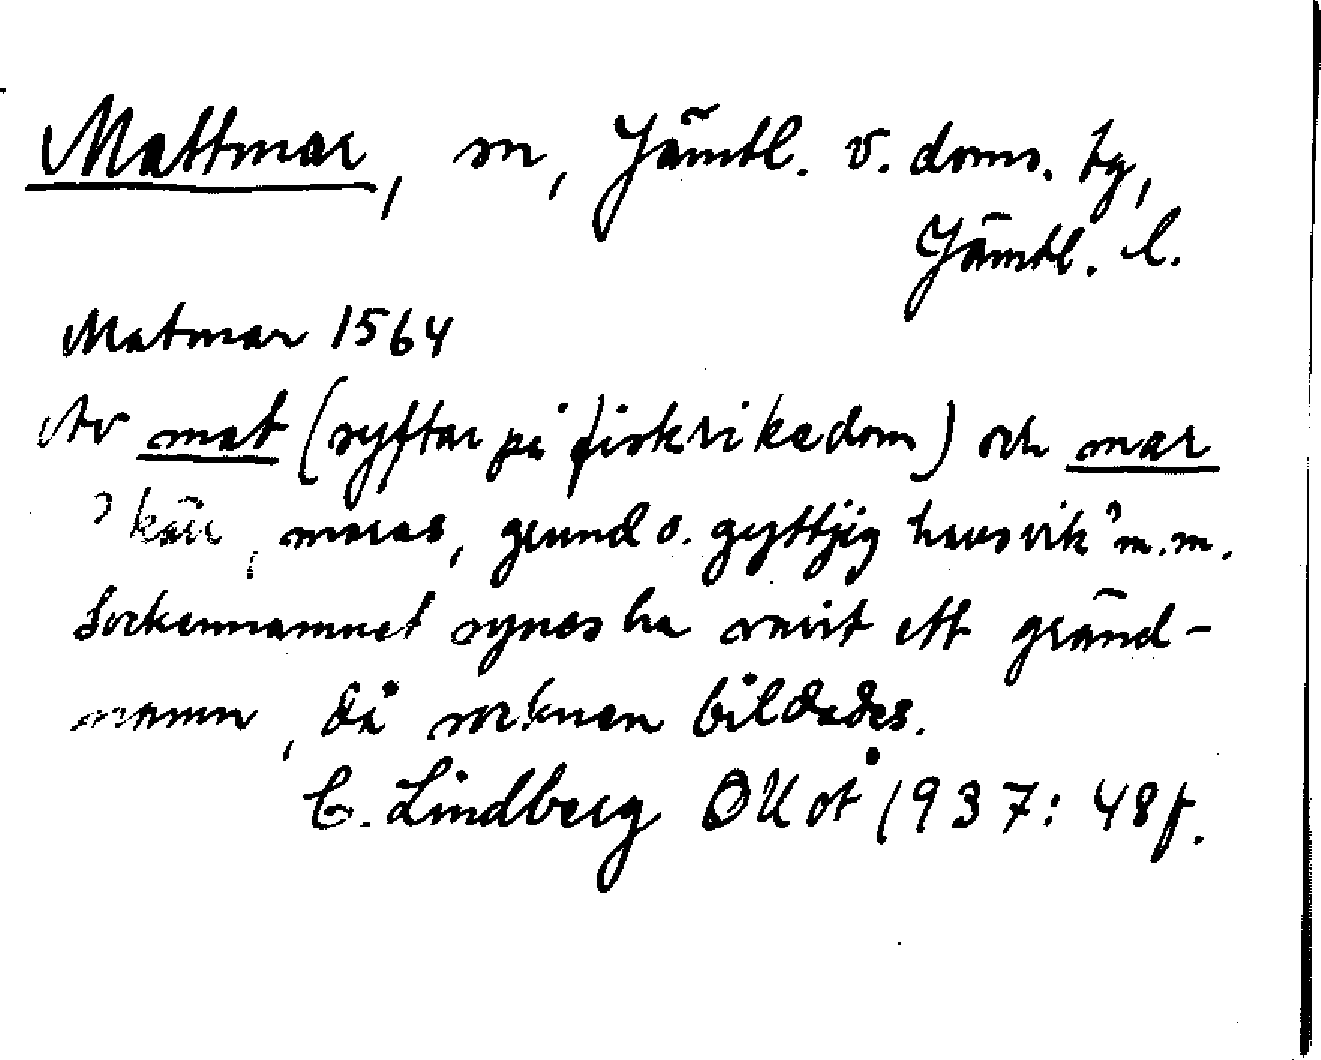 Mattmar, sn, Jämtl. v. doms. tg,
Jämtl. l.
Matmar 1564
Av mat (syftar på fiskrikedom) och mar
'kärr, moras, grund o. gyttjig havsvik' m.m.
Sockennamnet synes ha varit ett gränd-
namn, då socknen bildades.
C. Lindberg OUoÅ 1937: 48f.